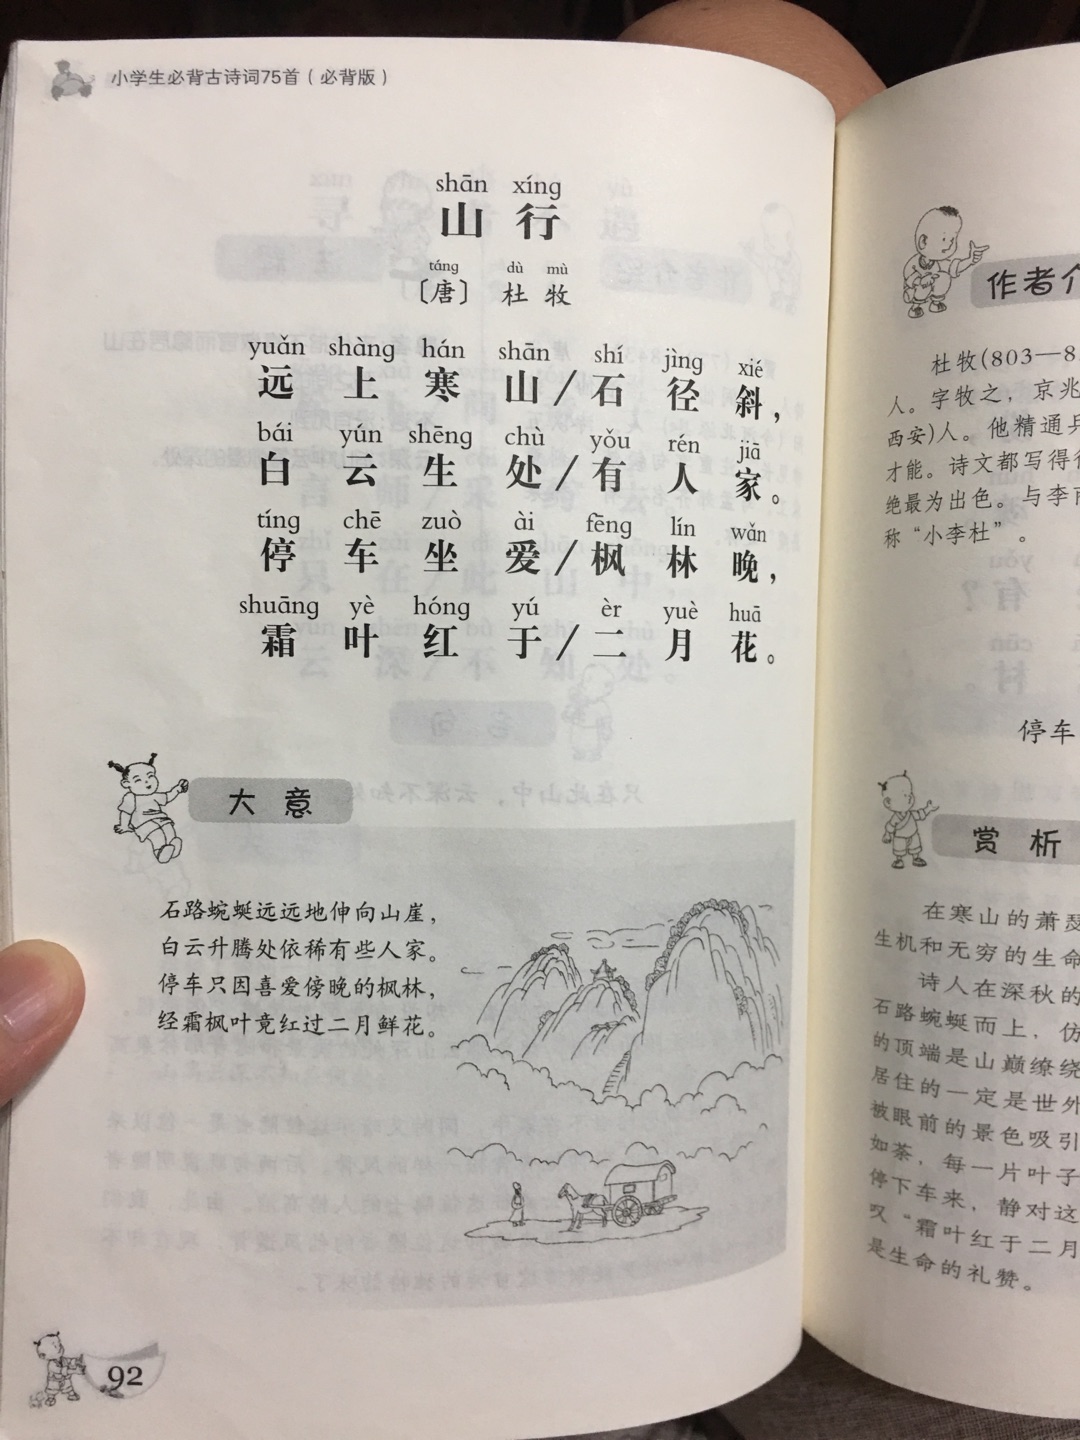 小学生必背古诗词75首（必背版）
shān xíng
山行
táng dù mù
〔唐〕 杜牧
yuǎn shàng hán shān shí jìng xié
远上寒山/石径斜，
bái yún shēng chù yǒu rén jiā
白云生处/有人家。
tíng chē zuò ài fēng lín wǎn
停车坐爱/枫林晚，
shuāng yè hóng yú èr yuè huā
霜叶红于/二月花。
大意
石路蜿蜒远远地伸向山崖，
白云升腾处依稀有些人家。
停车只因喜爱傍晚的枫林，
经霜枫叶竟红过二月鲜花。
92
作者介
杜牧(803—8
人。字牧之，京兆
西安)人。他精通兵
才能。诗文都写得
绝最为出色。与李
称“小李杜”。
停车
赏析
在寒山的萧瑟
生机和无穷的生命
诗人在深秋的
石路蜿蜒而上，仿
的顶端是山巅缭绕
居住的一定是世外
被眼前的景色吸引
如荼，每一片叶子
停下车来，静对这
叹“霜叶红于二月
是生命的礼赞。